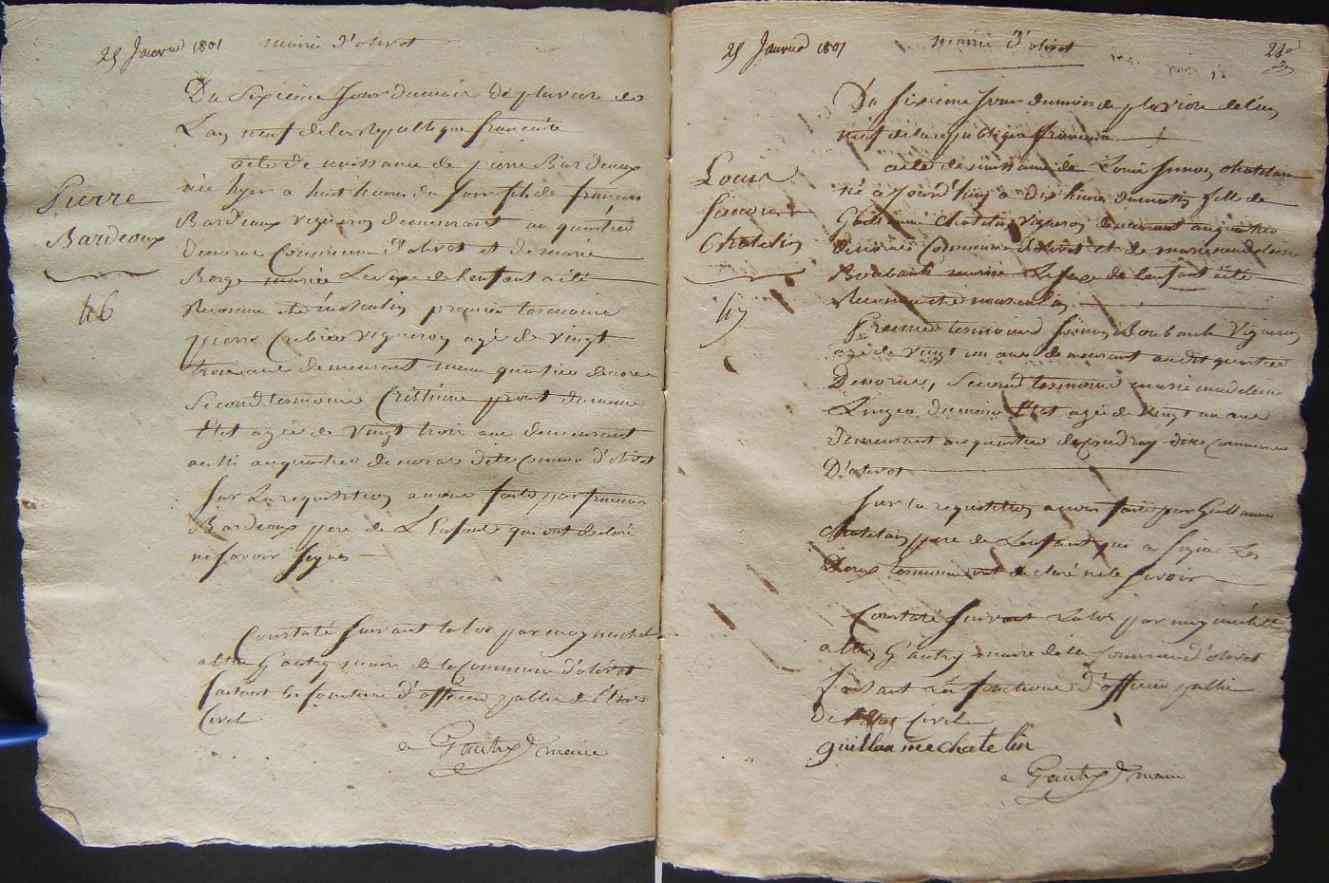 25 Janvier 1801 mairie d'olivet
Du sixieme jour du mois de pluviose de
L'an neuf de la republique francaise
acte de naissance de pierre Bardeaux
née hyer a huit heures du soir fils de francois
Bardeaux vigneron demeurant au quartier
Commune d'olivet et de marie
mariée Le sexe de lenfant a été
Reconnu etre masculin premier tesmoins
pierre vigneron agé de vingt
trois ans demeurant meme quartier
Second tesmoins Cristinne de meme
Etat agée de vingt trois ans demeurant
aussi au quartier dite Commune d'olivet
sur La requisition a nous faite par francois
Bardeaux pere de L'Enfant qui ont declaré
ne savoir signer
Constaté suivant la loi par moy michel
Gautry maire de la Commune d'olivet
faisant les fonctions d'officier public de l'Etat
Civil
Gautry maire
Pierre
Bardeaux
46
25 Janvier 1801 mairie d'olivet
Du sixieme jour du mois de pluviose de l'an
neuf de la republique francaise
acte de naissance de Louis simon chatelain
né a jourd'huy a dix heures du matin fils de
Guillaume Chatelin vigneron demeurant au quartier
Commune d'olivet et de marie madelaine
mariée Le sexe de lenfant a été
Reconnu etre masculin
Premier tesmoins simon vigneron
agé de vingt un ans demeurant au dit quartier
second tesmoins marie madelaine
du meme Etat agée de vingt un ans
demeurant au quartier du coudray dite commune
D'olivet
sur la requisition a nous faite par Guillaume
chatelain pere de Lenfant qui a signé Les
Deux tesmoins ont declaré ne le savoir
Constaté suivant La loi par moy michel
Gautry maire de la Commune d'olivet
faisant les fonctions d'officier public
De l'Etat Civil
guillaume chatelin
Gautry maire
Louis
simon
Chatelin
47